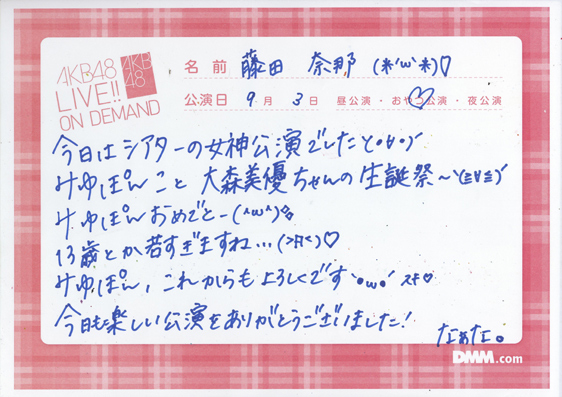 AKB48
LIVE!!
ON DEMAND
AKB
48
名前 藤田 奈那 (*'ω'*)♡
公演日 9月 3日 昼公演・おやつ公演・夜公演
今日はシアターの女神公演でしたと・v・)´
みゆぽんこと 大森美優ちゃんの生誕祭～ヽ(≧∀≦)´
みゆぽんおめでとー(^ω^)
13歳とか若すぎますね…(>д<)♡
みゆぽん、これからもよろしくです`・ω・´ スキ♡
今日も楽しい公演をありがとうございました!
なぁな。
DMM.com